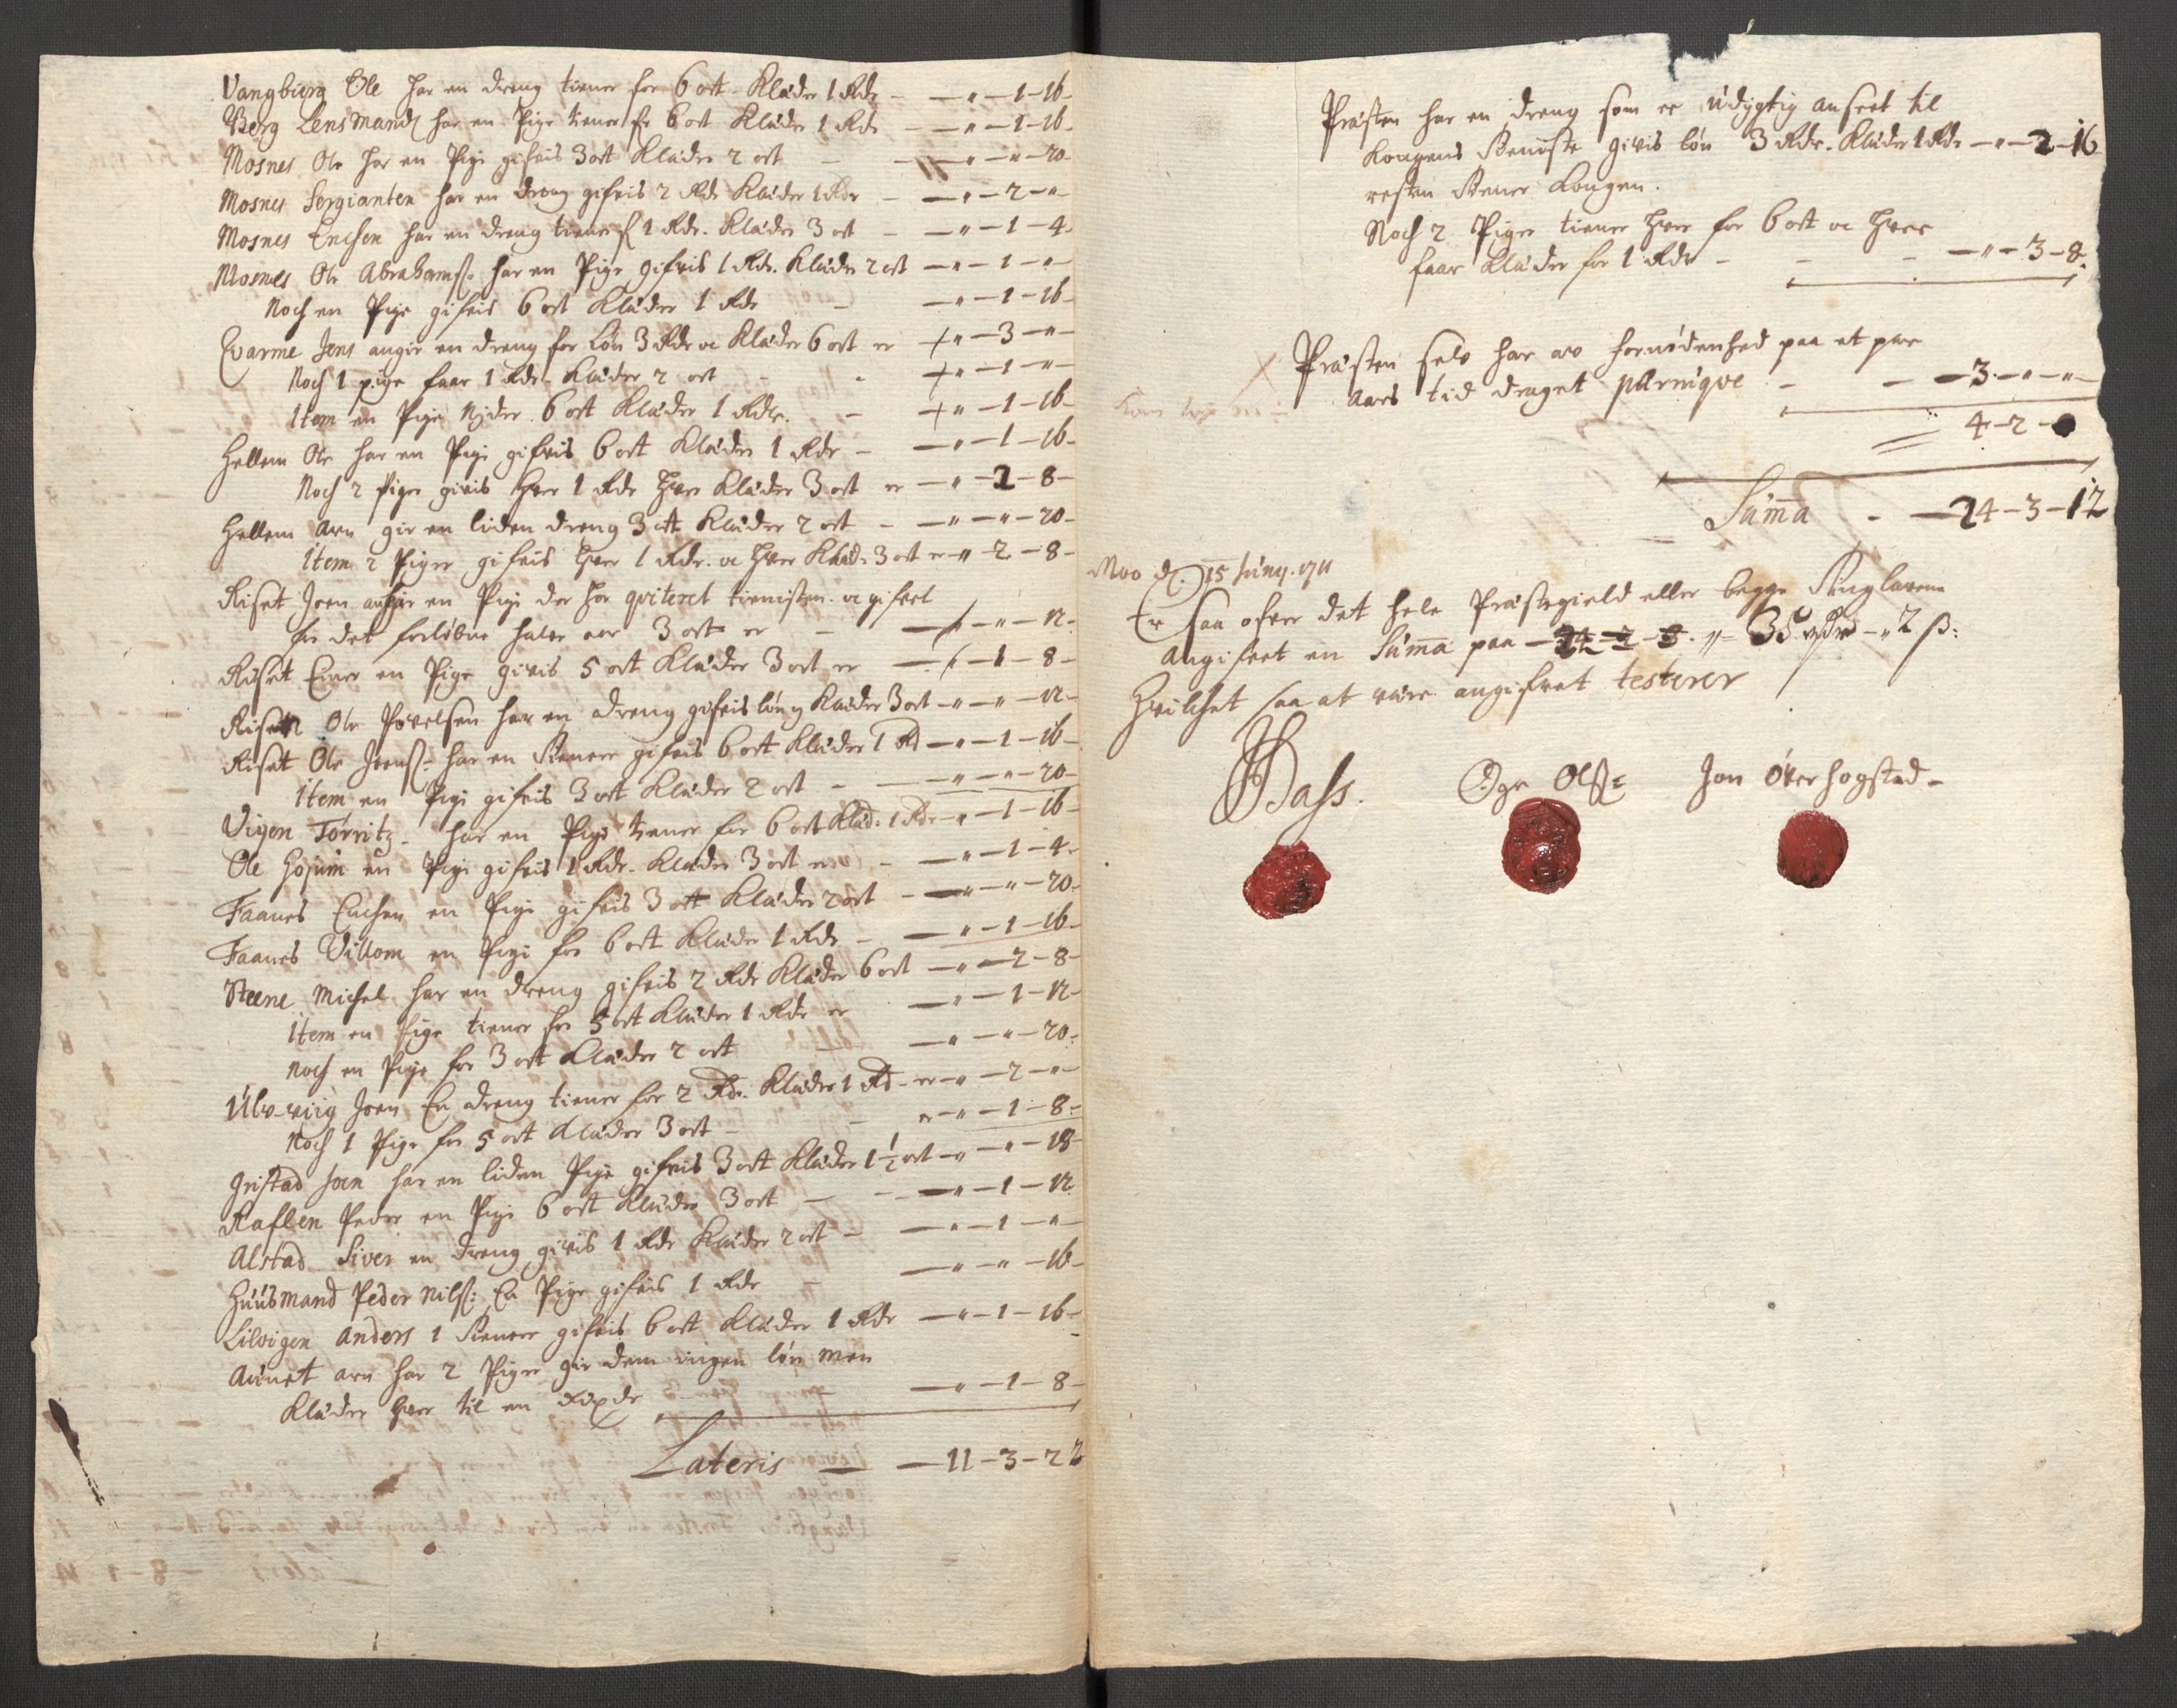 Vangbierg Ole har en dreng tiener for 6 ort Klæder 1 Rdr - — " — 1 — 16 -
Berg Lensmand har en Pige tiener for 6 ort Klæder 1 Rdr - — " — 1 — 16 -
Mosnes Ole har en Pige gifvis 3 ort Klæder 2 ort - — " — " — 20 -
Mosnes Sergianten har en dreng gifvis 2 Rdr Klæder 1 Rdr - — " — 2 — " -
Mosnes Enchen har en dreng tiener for 1 Rdr. Klæder 3 ort - — " — 1 — 4 -
Mosnes Ole Abrahamss: har en Pige gifvis 1 Rdr. Klæder 2 ort — " — 1 — " -
Noch en Pige gifvis 6 ort Klæder 1 Rdr - — " — 1 — 16 -
Qvarme Jens angir en dreng for Løn 3 Rdr oc Klæder 6 ort er + " — 3 — " -
Noch 1 pige faar 1 Rdr - Klæder 2 ort - + " — 1 — " -
Item en Pige Nyder 6 ort Klæder 1 Rdr. - + " — 1 — 16 -
Hellem Ole har en Pige gifvis 6 ort Klæder 1 Rdr - — " — 1 — 16 -
Noch 2 Piger givis hver 1 Rdr hver Klæder 3 ort er — " — 2 — 8 -
Hellem Arn gir en liden dreng 3 ort Klæder 2 ort - — " — " — 20 -
Item 2 Piger gifvis hver 1 Rdr. oc hver Klæd: 3 ort er — " — 2 — 8 -
Riset Joen angir en Pige der har qviteret tienisten oc gifvet
for det forløbne halve aar 3 ort er - — " — " — 12 -
Riset Einer en Pige givis 5 ort Klæder 3 ort er — " — 1 — 8 -
Riset Ole Povelsen har en dreng gifvis løn Klæder 3 ort — " — " — 12 -
Riset Ole Joenss: har en Tienere gifvis 6 ort Klæder 1 Rd — " — 1 — 16 -
Item en Pige gifvis 3 ort Klæder 2 ort - — " — " — 20 -
Vigen Tørritz - har en Pige tiener for 6 ort Klæd: 1 Rdr — " — 1 — 16 -
Ole Hojum en Pige gifvis 1 Rdr. Klæder 3 ort er - — " — 1 — 4 -
Faanes Enchen en Pige gifvis 3 ort Klæder 2 ort - — " — " — 20 -
Faanes Villom en Pige for 6 ort Klæder 1 Rdr - — " — 1 — 16 -
Steene Michel har en dreng gifvis 2 Rdr Klæder 6 ort — " — 2 — 8 -
Item en Pige tiener for 5 ort Klæder 1 Rdr er — " — 1 — 12 -
Noch en Pige for 3 ort Klæder 2 ort — " — " — 20 -
Joen En dreng tiener for 2 Rdr. Klæder 1 Rd - er — " — 2 — " -
Noch 1 Pige for 5 ort Klæder 3 ort - - er — " — 1 — 8 -
Gristad Joen har en liden Pige gifvis 3 ort Klæder 1 1/2 ort — " — " — 18 -
Raflen Peder en Pige 6 ort Klæder 3 ort - — " — 1 — 12
Alstad Siver en dreng givis 1 Rdr Klæder 2 ort - — " — 1 — " -
Huusmand Peder Nilss: En Pige gifvis 1 Rdr - — " — " — 16 -
Lilvigen Anders 1 Tienere gifvis 6 ort Klæder 1 Rdr — " — 1 — 16 -
Aunet Arn har 2 Piger gir dem ingen løn men
Klæder hver til en — " — 1 — 8 -
Lateris — — 11 — 3 — 22
Præsten har en dreng som er udygtig anseet til
Kongens Tieniste givis løn 3 Rdr. Klæder 1 Rdr — " — 2 — 16
resten Tiener Kongen.
Noch 2 Piger tiener hver for 6 ort oc hver
faar Klæder for 1 Rdr - - - — " — 3 — 8 -
Præsten selv har av fornødenhed paa et par
Aars tid draget pærriqve - - — 3 — " — "
4 — 2 —
Summa - — 24 — 3 — 12
Moo d. 15 Juny. 1711
Er saa ofver det hele Præstegield eller begge Tinglavene
Angifvet en Summa paa — " = 35 rdr — " 2 ß:
Hvilchet saa at være angifvet testerer
Dass. Ole Olss: Jon Øver hogstad -